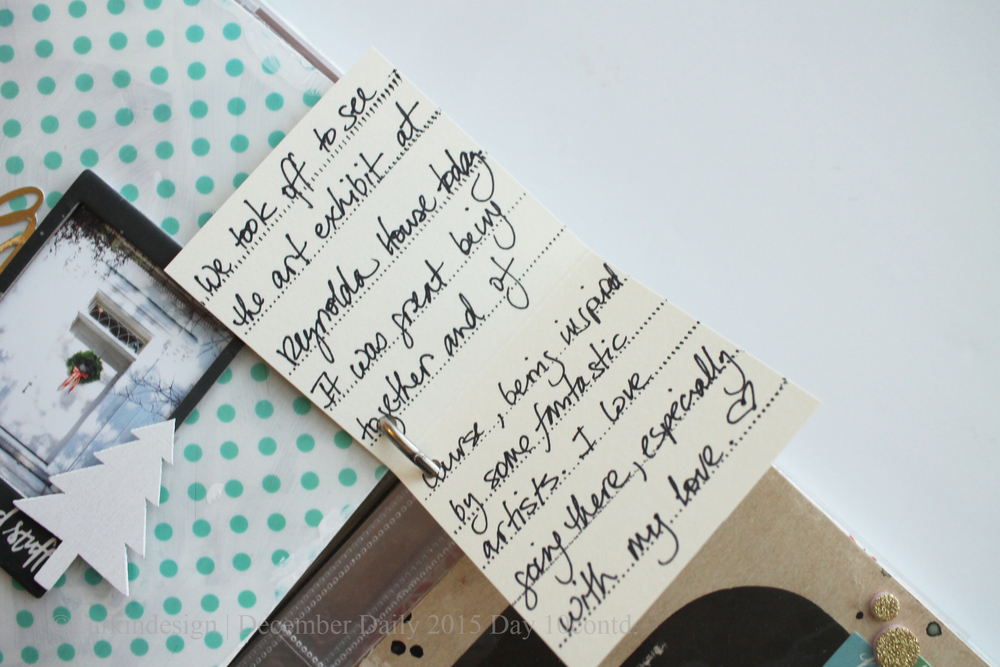 We took off to see
the art exhibit at
Reynolda House today.
It was great being
together and of
course, being inspired
by some fantastic
artists. I love
going there, especially
with my love. ♡
d stuff
December Daily 2015 Day 1 contd.